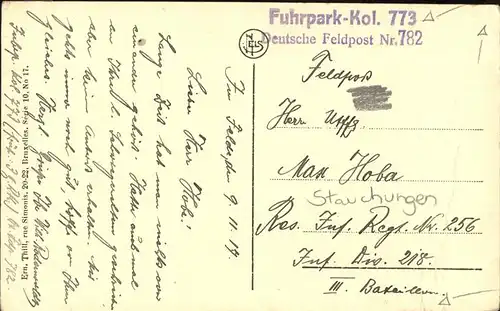 Fuhrpark-Kol. 773
Deutsche Feldpost Nr. 782
Feldpost
Herrn Uffz
Max Hoba
Stauchungen
Res. Inf. Regt. Nr. 256
Inf. Div. 218.
III. Bataillon
Im Felde, den 9. 11. 17
Lieber Herr Hoba!
Lange Zeit hat man nichts von
einander gehört. Hatte auch mal
an Ihnen
aber keine Antwort erhalten. Mir
geht's immer noch gut, hoffe von Ihnen
gleiches. Herzl. Grüße Ihr
773
782
Ern. Thill, rue Simonis, 20-22, Bruxelles, Série 10, No 17.